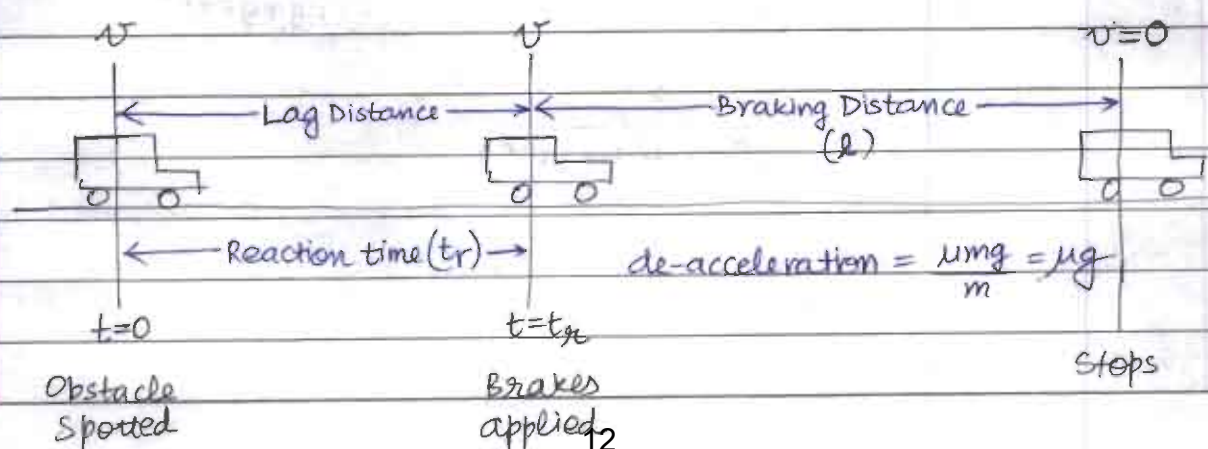 v v v=0
Lag Distance Braking Distance
(l)
Reaction time (tr) de-acceleration = μmg/m = μg
t=0 t=tr
Stops
Obstacle Brakes
Spotted applied
12